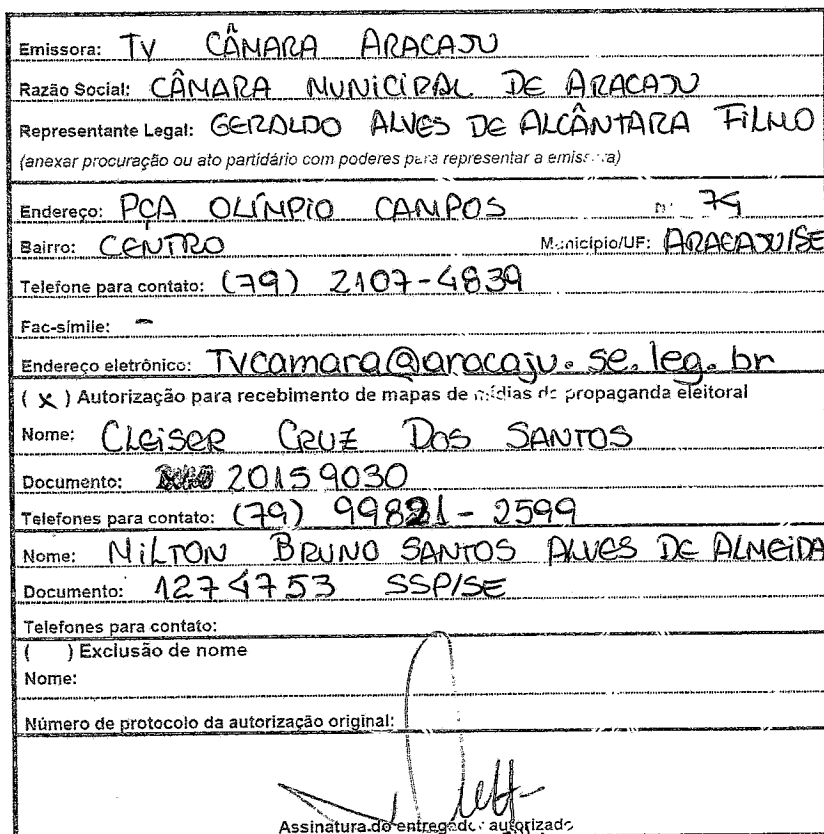 Emissora: TV CÂMARA ARACAJU
Razão Social: CÂMARA MUNICIPAL DE ARACAJU
Representante Legal: GERALDO ALVES DE ALCÂNTARA FILHO
(anexar procuração ou ato partidário com poderes para representar a emissora)
Endereço: PÇA OLÍMPIO CAMPOS nº 74
Bairro: CENTRO Município/UF: ARACAJU/SE
Telefone para contato: (79) 2107-4839
Fac-símile: -
Endereço eletrônico: Tvcamara@aracaju.se.leg.br
( x ) Autorização para recebimento de mapas de mídias de propaganda eleitoral
Nome: CLEISER CRUZ DOS SANTOS
Documento: 20159030
Telefones para contato: (79) 99821-2599
Nome: MILTON BRUNO SANTOS ALVES DE ALMEIDA
Documento: 1274753 SSP/SE
Telefones para contato:
( ) Exclusão de nome
Nome:
Número de protocolo da autorização original:
Assinatura do entregador autorizado